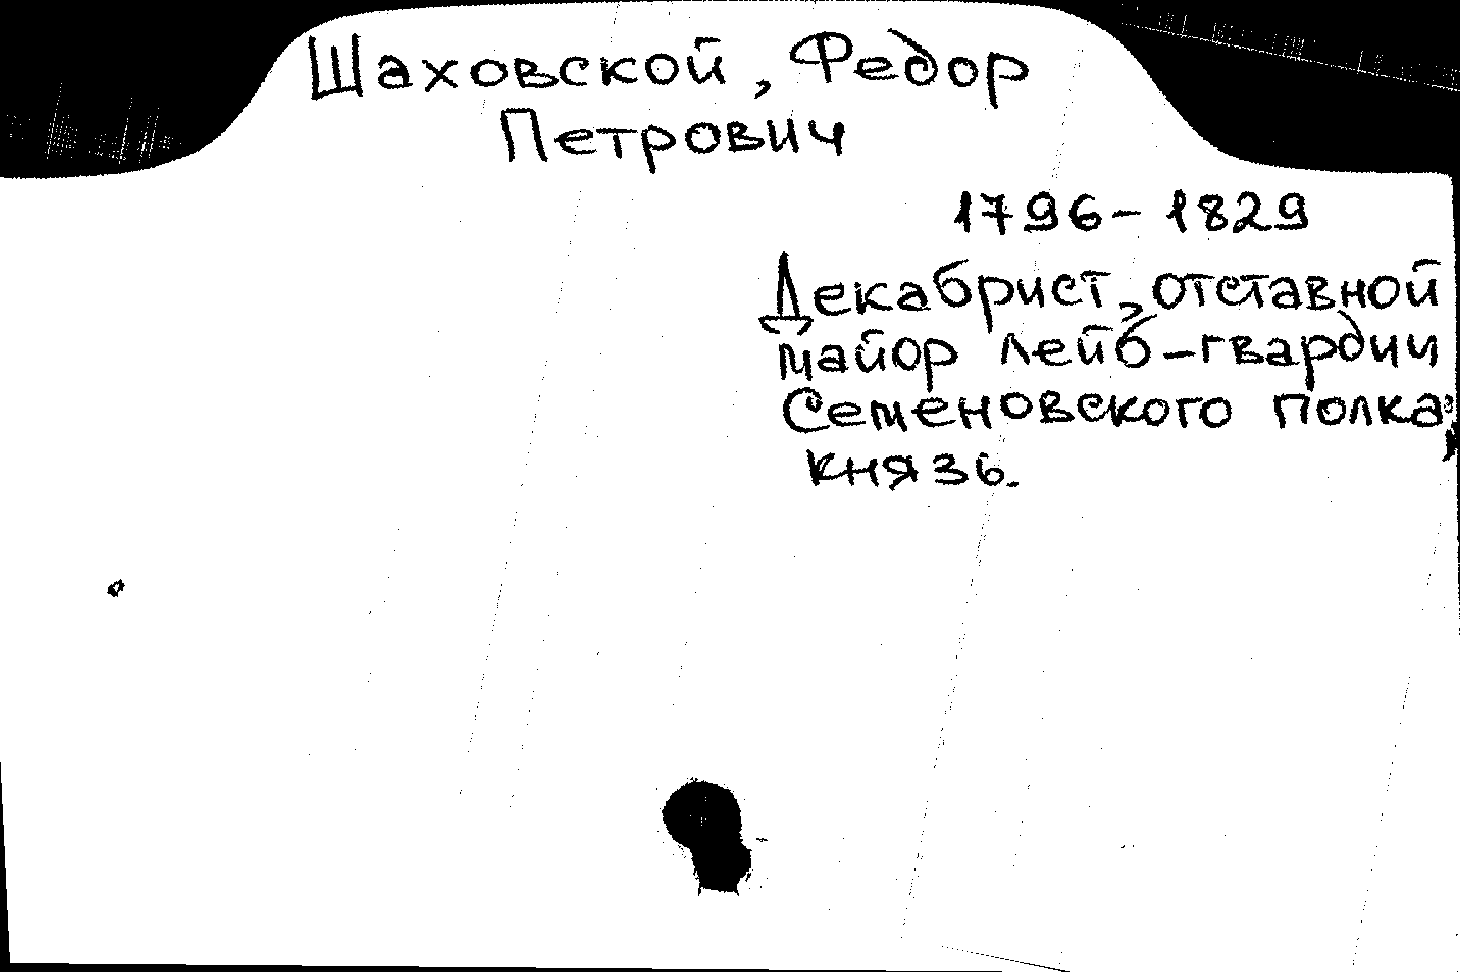 Шаховской, Федор
Петрович
1796-1829
Декабрист, отставной
майор лейб-гвардии
Семеновского полка,
князь.